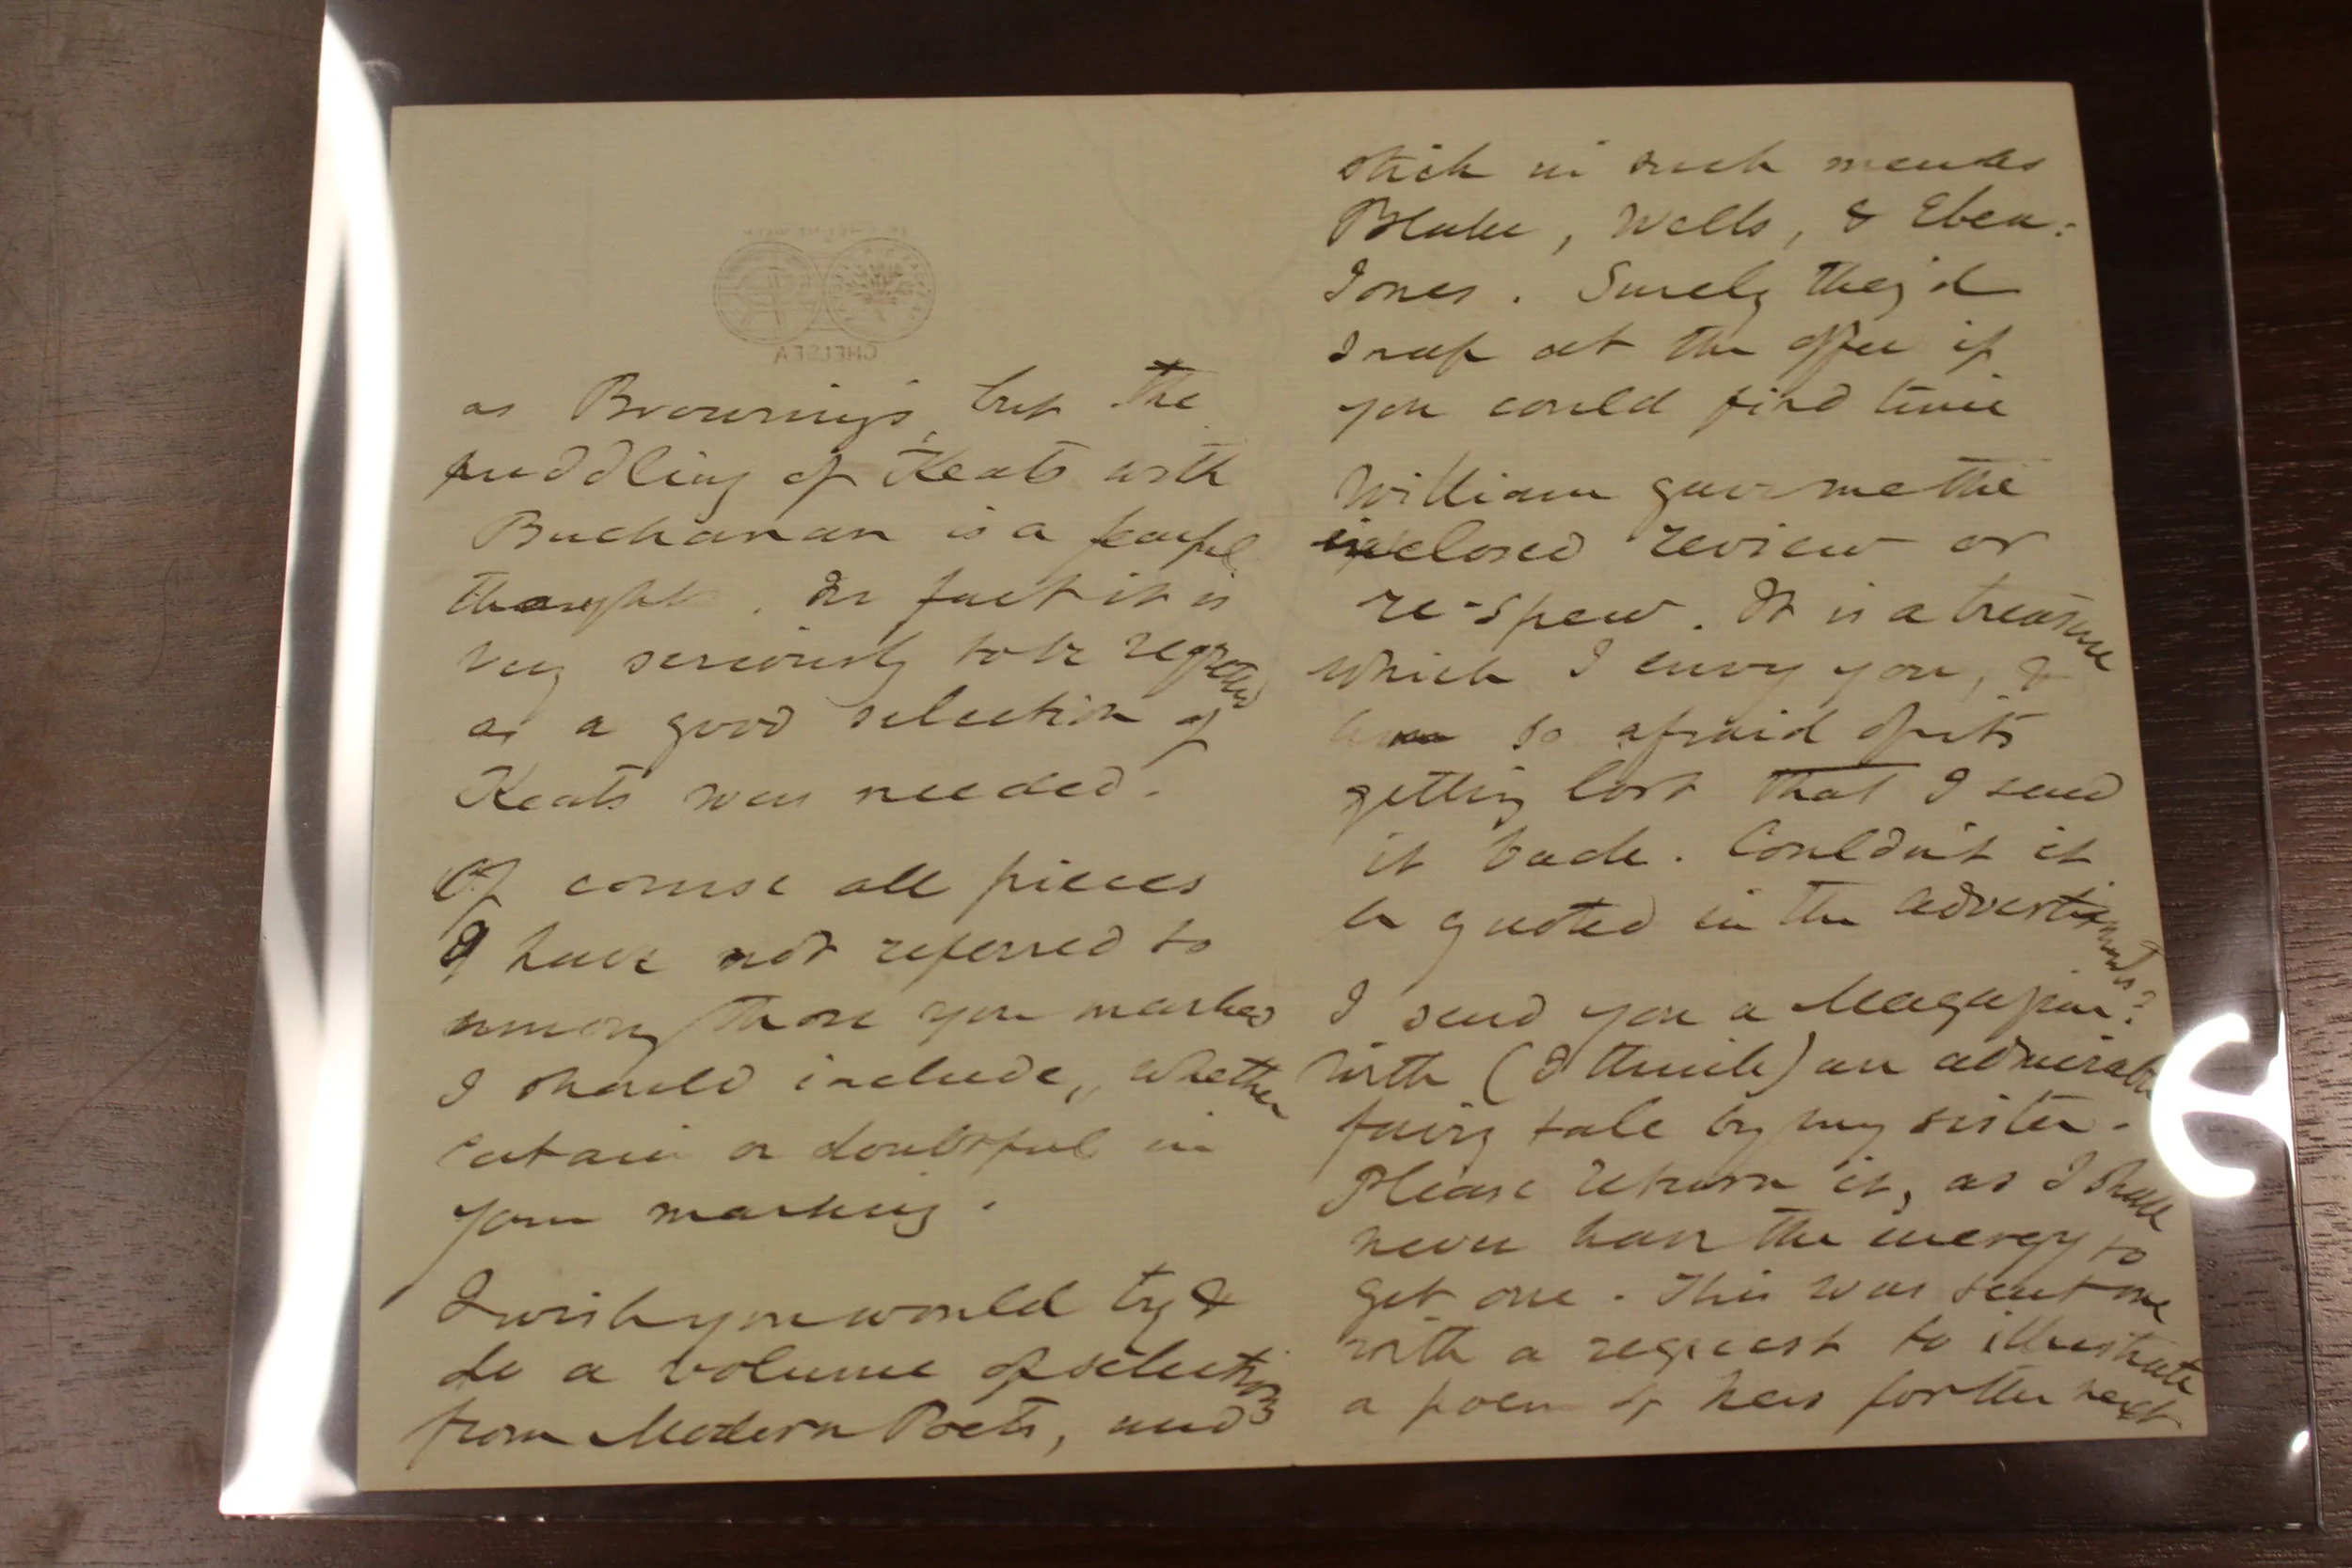 CHELSEA
as Browning's, but the
puddling of Keats with
Buchanan is a fearful
thought. In fact it is
very seriously to be regretted
as a good selection of
Keats was needed.
Of course all pieces
I have not referred to
among those you marked
I should include, whether
certain or doubtful in
your marking.
I wish you would try &
do a volume of selections
from Modern Poets, and
stick in such meades
Blake, Wells, & Eben:
Jones. Surely they'd
snap at the offer if
you could find time
William gave me the
inclosed review or
re-spew. It is a treasure
which I envy you, &
am so afraid of its
getting lost that I send
it back. Couldn't it
be quoted in the advertisements?
I send you a Magazine
with (I think) an admirable
fairy tale by my sister.
Please return it, as I shall
never have the energy to
get one. This was sent me
with a request to illustrate
a poem of hers for the next